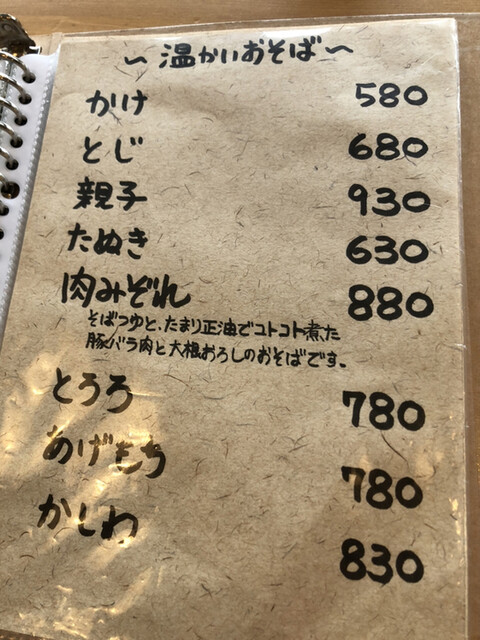 ～温かいおそば～
かけ 580
とじ 680
親子 930
たぬき 630
肉みぞれ 880
そばつゆと、たまり正油でコトコト煮た
豚バラ肉と大根おろしのおそばです。
とうろ 780
あげもち 780
かしわ 830